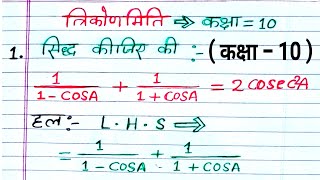 त्रिकोणमिति ⇒ कक्षा = 10
1. सिद्ध कीजिए की :- (कक्षा - 10)
1/(1 - COSA) + 1/(1 + COSA) = 2 cosec²A
हल :- L.H.S ⇒
= 1/(1 - COSA) + 1/(1 + COSA)